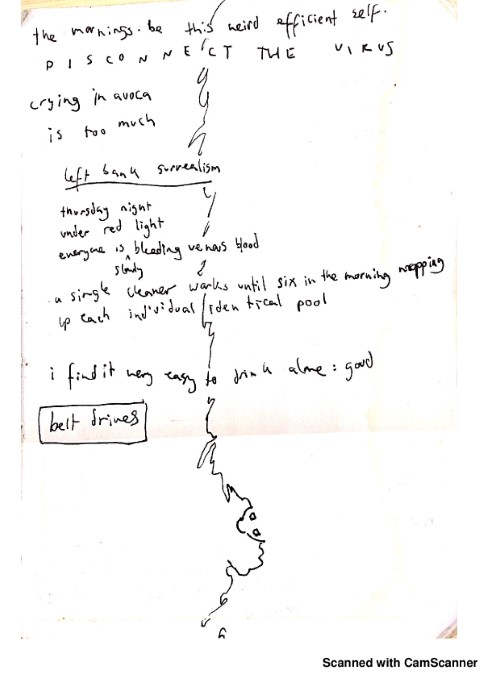 the mornings. be this weird efficient self.
DISCONNECT THE VIRUS
crying in avoca
is too much
left bank surrealism
thursday night
under red light
everyone is slowly bleeding venous blood
a single cleaner works until six in the morning mopping
up each individual identical pool
i find it very easy to drink alone: good
belt drives
Scanned with CamScanner